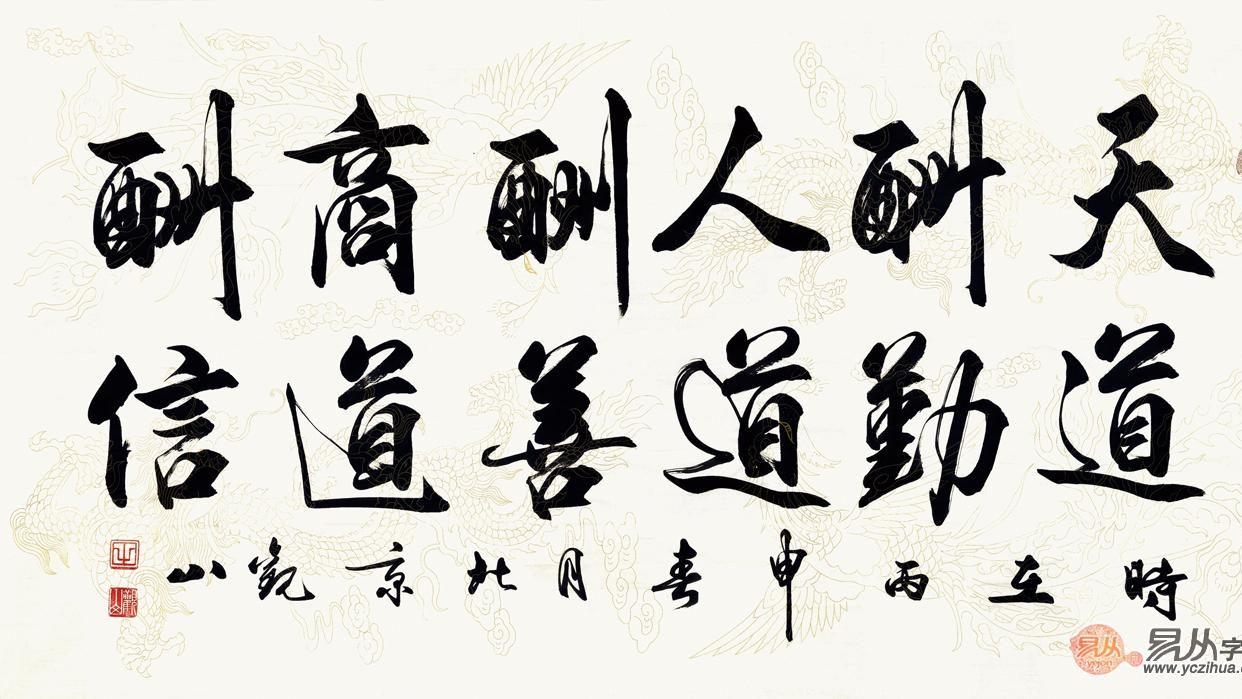 天道
酬勤
人道
酬善
商道
酬信
時在丙申春月北京觀山
觀山
易从
易从字
www.yczihua.c